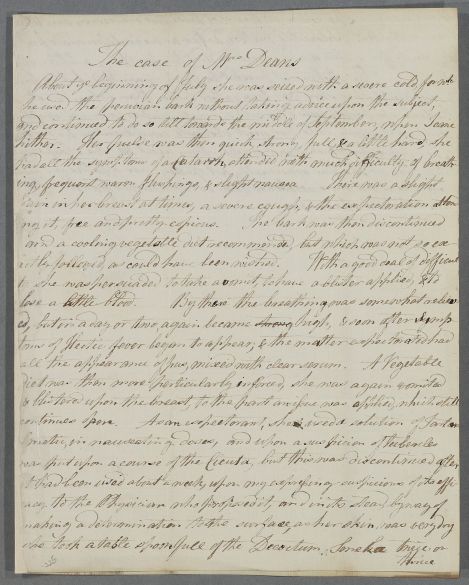 The case of Mrs Deans
About ye beginning of July she was seized with a severe cold, for wh
she used the peruvian bark without taking advice upon the subject,
and continued to do so till towards the middle of September, when I came
hither. Her pulse was then quick, strong, full & a little hard, she
had all the symptoms of a Catarrh, attended with much difficulty of breath
ing, frequent warm flushings, & slight nausea. There was a slight
pain in her breast at times, a severe cough, & the expectoration atten
ing it, free and pretty copious. The bark was then discontinued
and a cooling vegetable diet recommended, but which was not so ex
actly followed as could have been wished. With a good deal of difficul
ty she was persuaded to take a vomit, to have a blister applied, & to
lose a little blood. By these the breathing was somewhat reliev
ed, but in a day or two again became high, & soon after symp
toms of Hectic fever began to appear, & the matter expectorated had
all the appearance of pus, mixed with clear serum. A Vegetable
diet was then more particularly enforced, she was again vomited
a blister upon the breast, to the part an issue was applied, which still
continues open. As an expectorant, she used a solution of Tartar
Emetic, in nauseating doses, and upon a suspicion of tubercles
was put upon a course of the Cicuta, but this was discontinued after
it had been used about a week, upon my expressing suspicions of its effi
cacy, to the Physician who proposed it, and in its stead, by way of
making a determination to the surface, as her skin was very dry
she took a table spoonfull of the Decoctum Seneka twice or
thrice